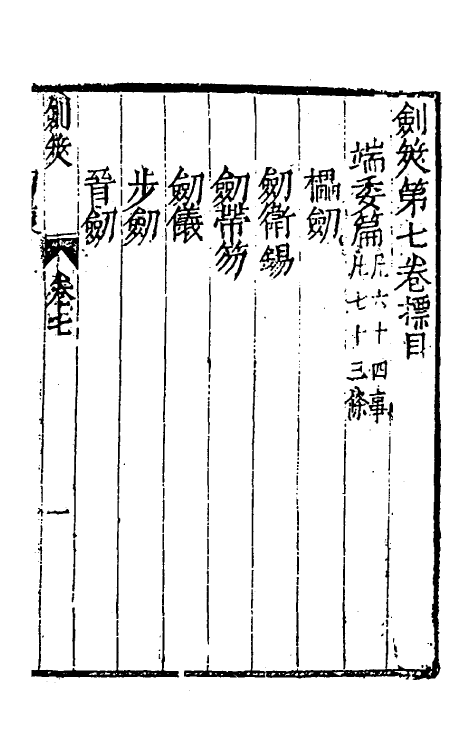 劍筴第七卷標目
端委篇凡六十四事
凡七十三條
櫑劒
劒衛錫
劒帶笏
劒儀
步劒
晉劒
劍筴
卷七
一